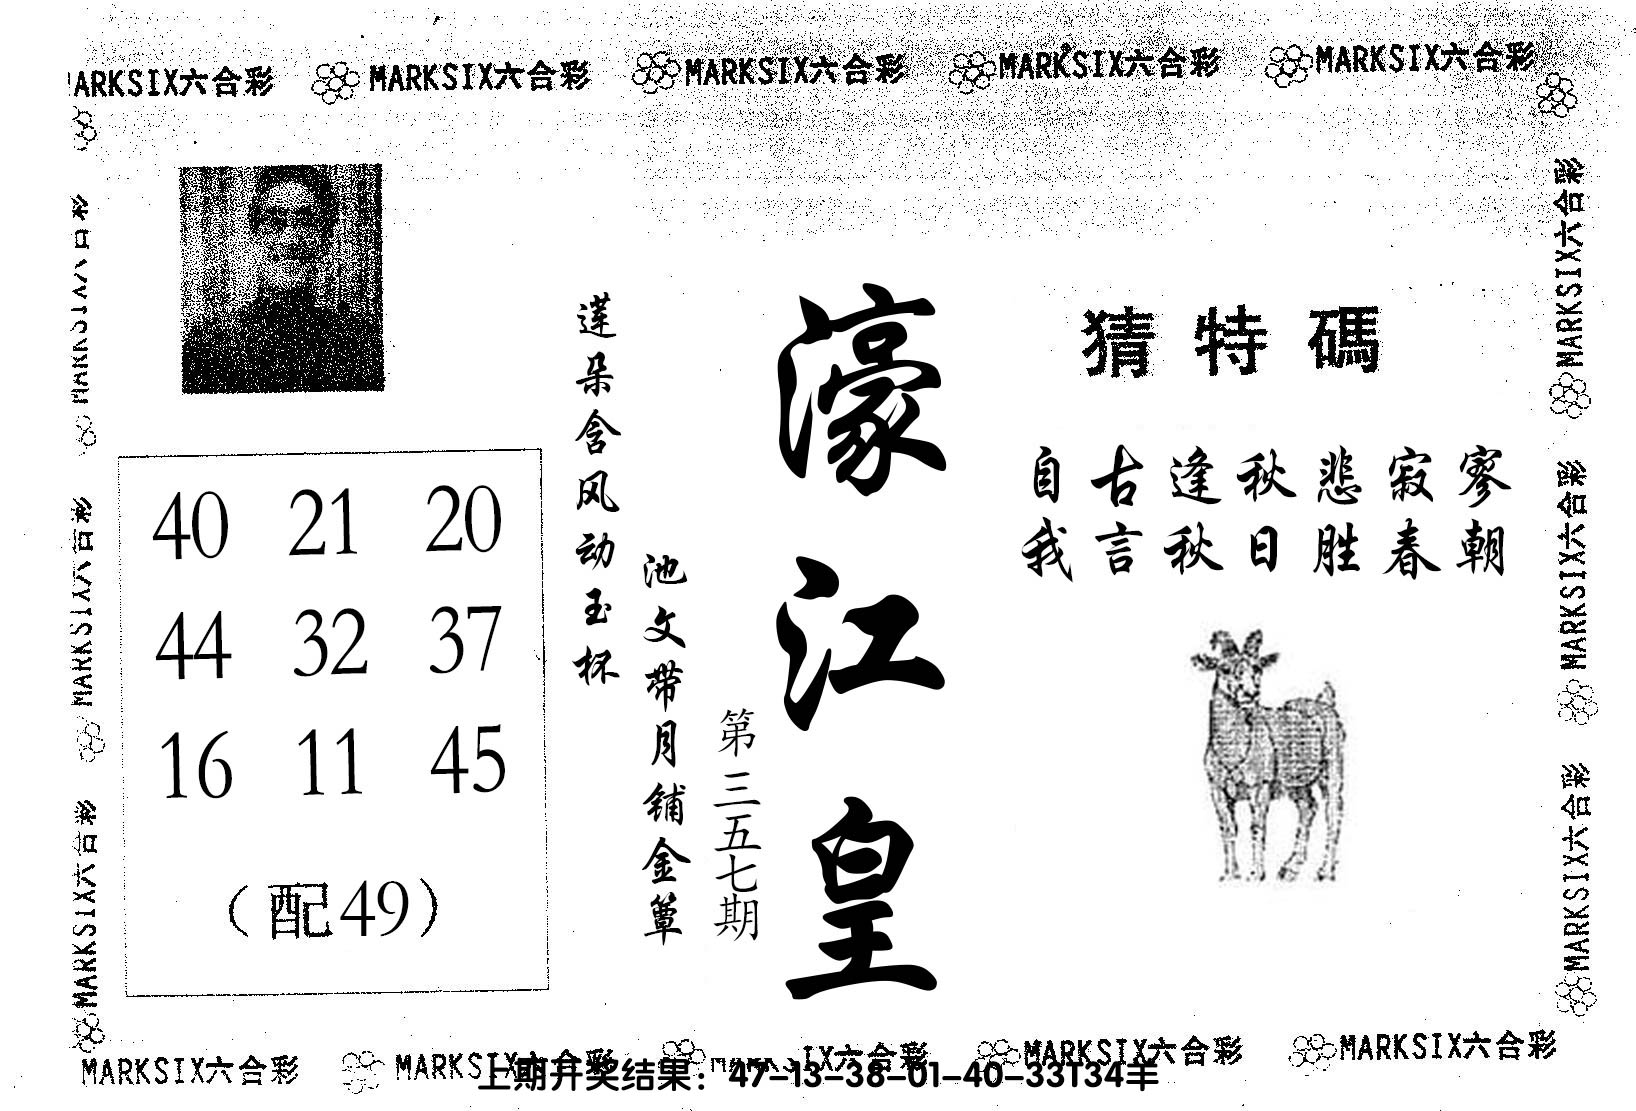 MARKSIX六合彩 MARKSIX六合彩 MARKSIX六合彩 MARKSIX六合彩
猜特碼
自古逢秋悲寂寥
我言秋日胜春朝
濠江皇
第三五七期
莲朵含风动玉杯
池文带月铺金簟
40 21 20
44 32 37
16 11 45
（配49）
MARKSIX六合彩
MARKSIX六合彩
MARKSIX六合彩
MARKSIX六合彩
MARKSIX六合彩
MARKSIX六合彩 MARKSIX六合彩 MARKSIX六合彩 MARKSIX六合彩
上期开奖结果：47-13-38-01-40-33T34羊